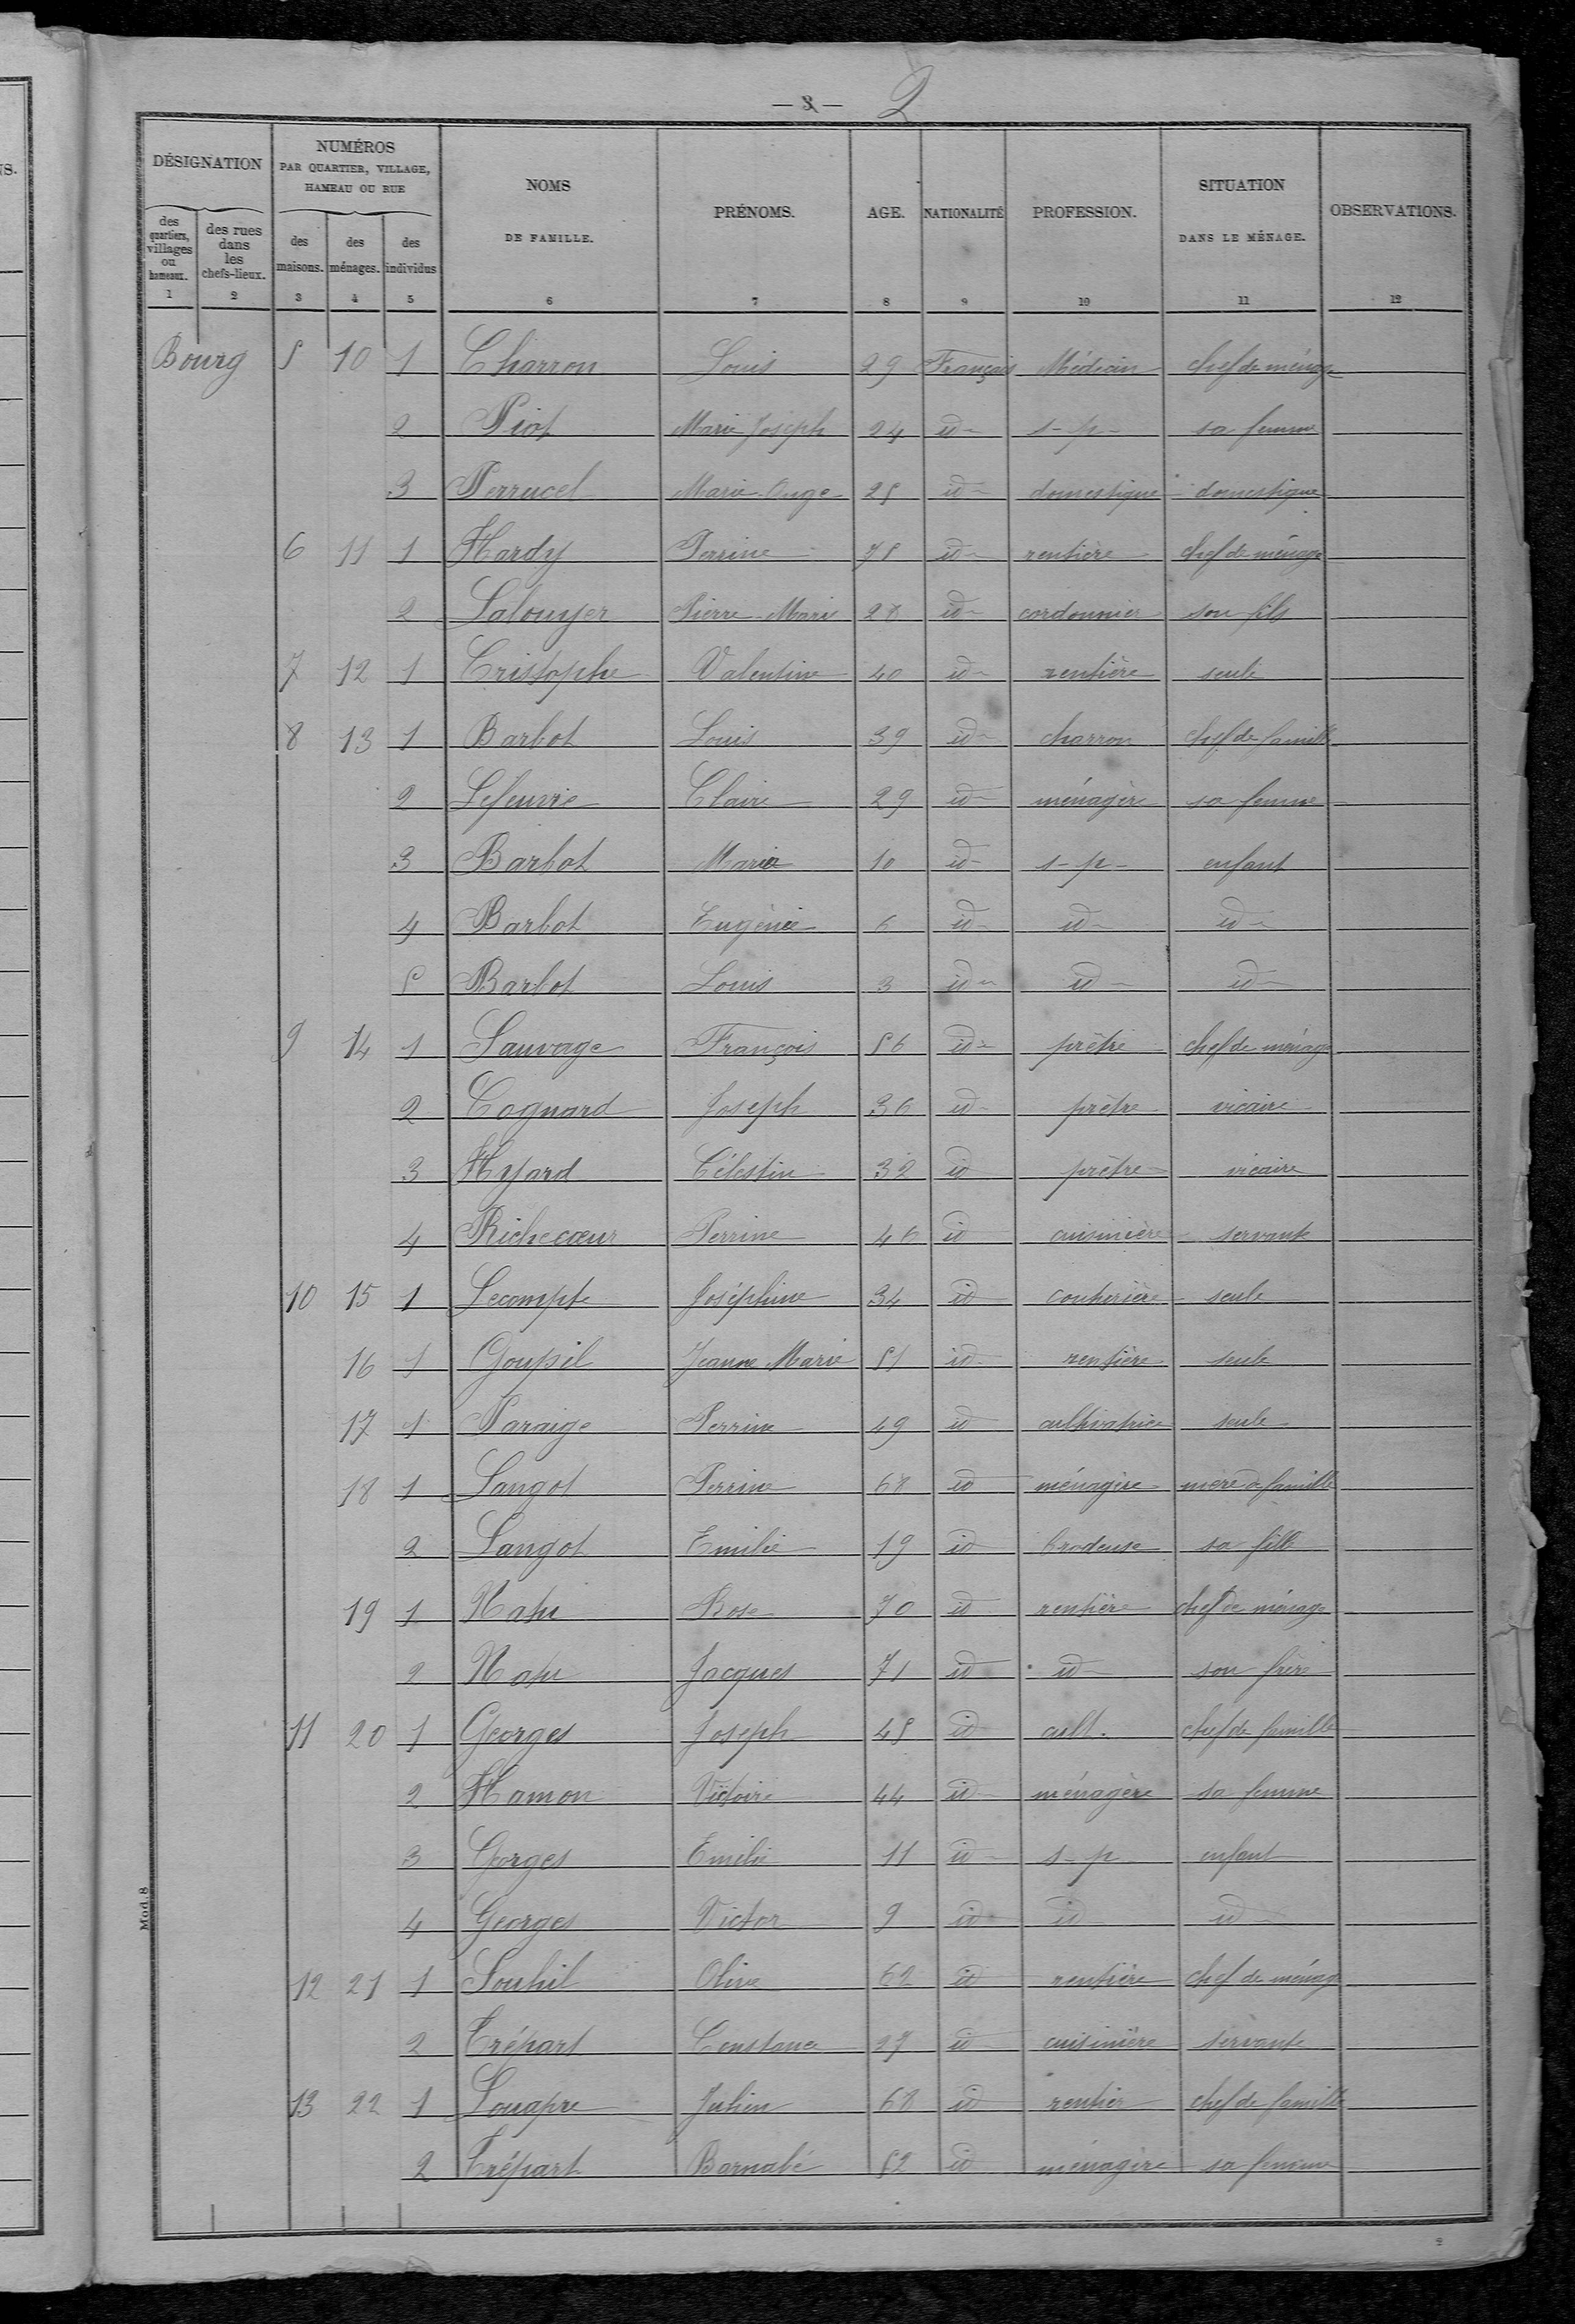 — 3 — 2
DÉSIGNATION
NUMÉROS PAR QUARTIER, VILLAGE, HAMEAU OU RUE
NOMS DE FAMILLE.
PRÉNOMS.
AGE.
NATIONALITÉ
PROFESSION.
SITUATION DANS LE MÉNAGE.
OBSERVATIONS.
des quartiers, villages ou hameaux.
des rues dans les chefs-lieux.
des maisons.
des ménages.
des individus
1 2 3 4 5 6 7 8 9 10 11 12
Bourg 5 10 1 Charron Louis 29 Français Médecin chef de ménage
2 Piot Marie Joseph 24 id s-p- sa femme
3 Perrucel Marie-Ange 25 id domestique domestique
6 11 1 Hardy Perrine 75 id rentière chef de ménage
2 Salouyer Pierre-Marie 28 id cordonnier son fils
7 12 1 Cristophe Valentine 40 id rentière seule
8 13 1 Barbot Louis 39 id charron chef de famille
2 Lefeuvre Claire 29 id ménagère sa femme
3 Barbot Maria 10 id s-p- enfant
4 Barbot Eugénie 6 id id id
5 Barbot Louis 3 id id id
9 14 1 Sauvage François 56 id prêtre chef de ménage
2 Cognard Joseph 36 id prêtre vicaire
3 Hyard Célestin 32 id prêtre vicaire
4 Richecœur Perrine 46 id cuisinière servante
10 15 1 Lecompte Joséphine 34 id couturière seule
16 1 Goupil Jeanne Marie 51 id rentière seule
17 1 Paraige Perrine 49 id cultivatrice seule
18 1 Langot Perrine 68 id ménagère mère de famille
2 Langot Emilie 19 id brodeuse sa fille
19 1 Natu Rose 70 id rentière chef de ménage
2 Natu Jacques 71 id id son frère
11 20 1 Georges Joseph 45 id cult. chef de famille
2 Hamon Victoire 44 id ménagère sa femme
3 Georges Emilie 11 id s-p enfant
4 Georges Victor 9 id id id
12 21 1 Olive 62 id rentière chef de ménage
2 Trépart Constance 27 id cuisinière servante
13 22 1 Louapre Julien 68 id rentier chef de famille
2 Trépart Barnabé 52 id ménagère sa femme
Mod. 8
2